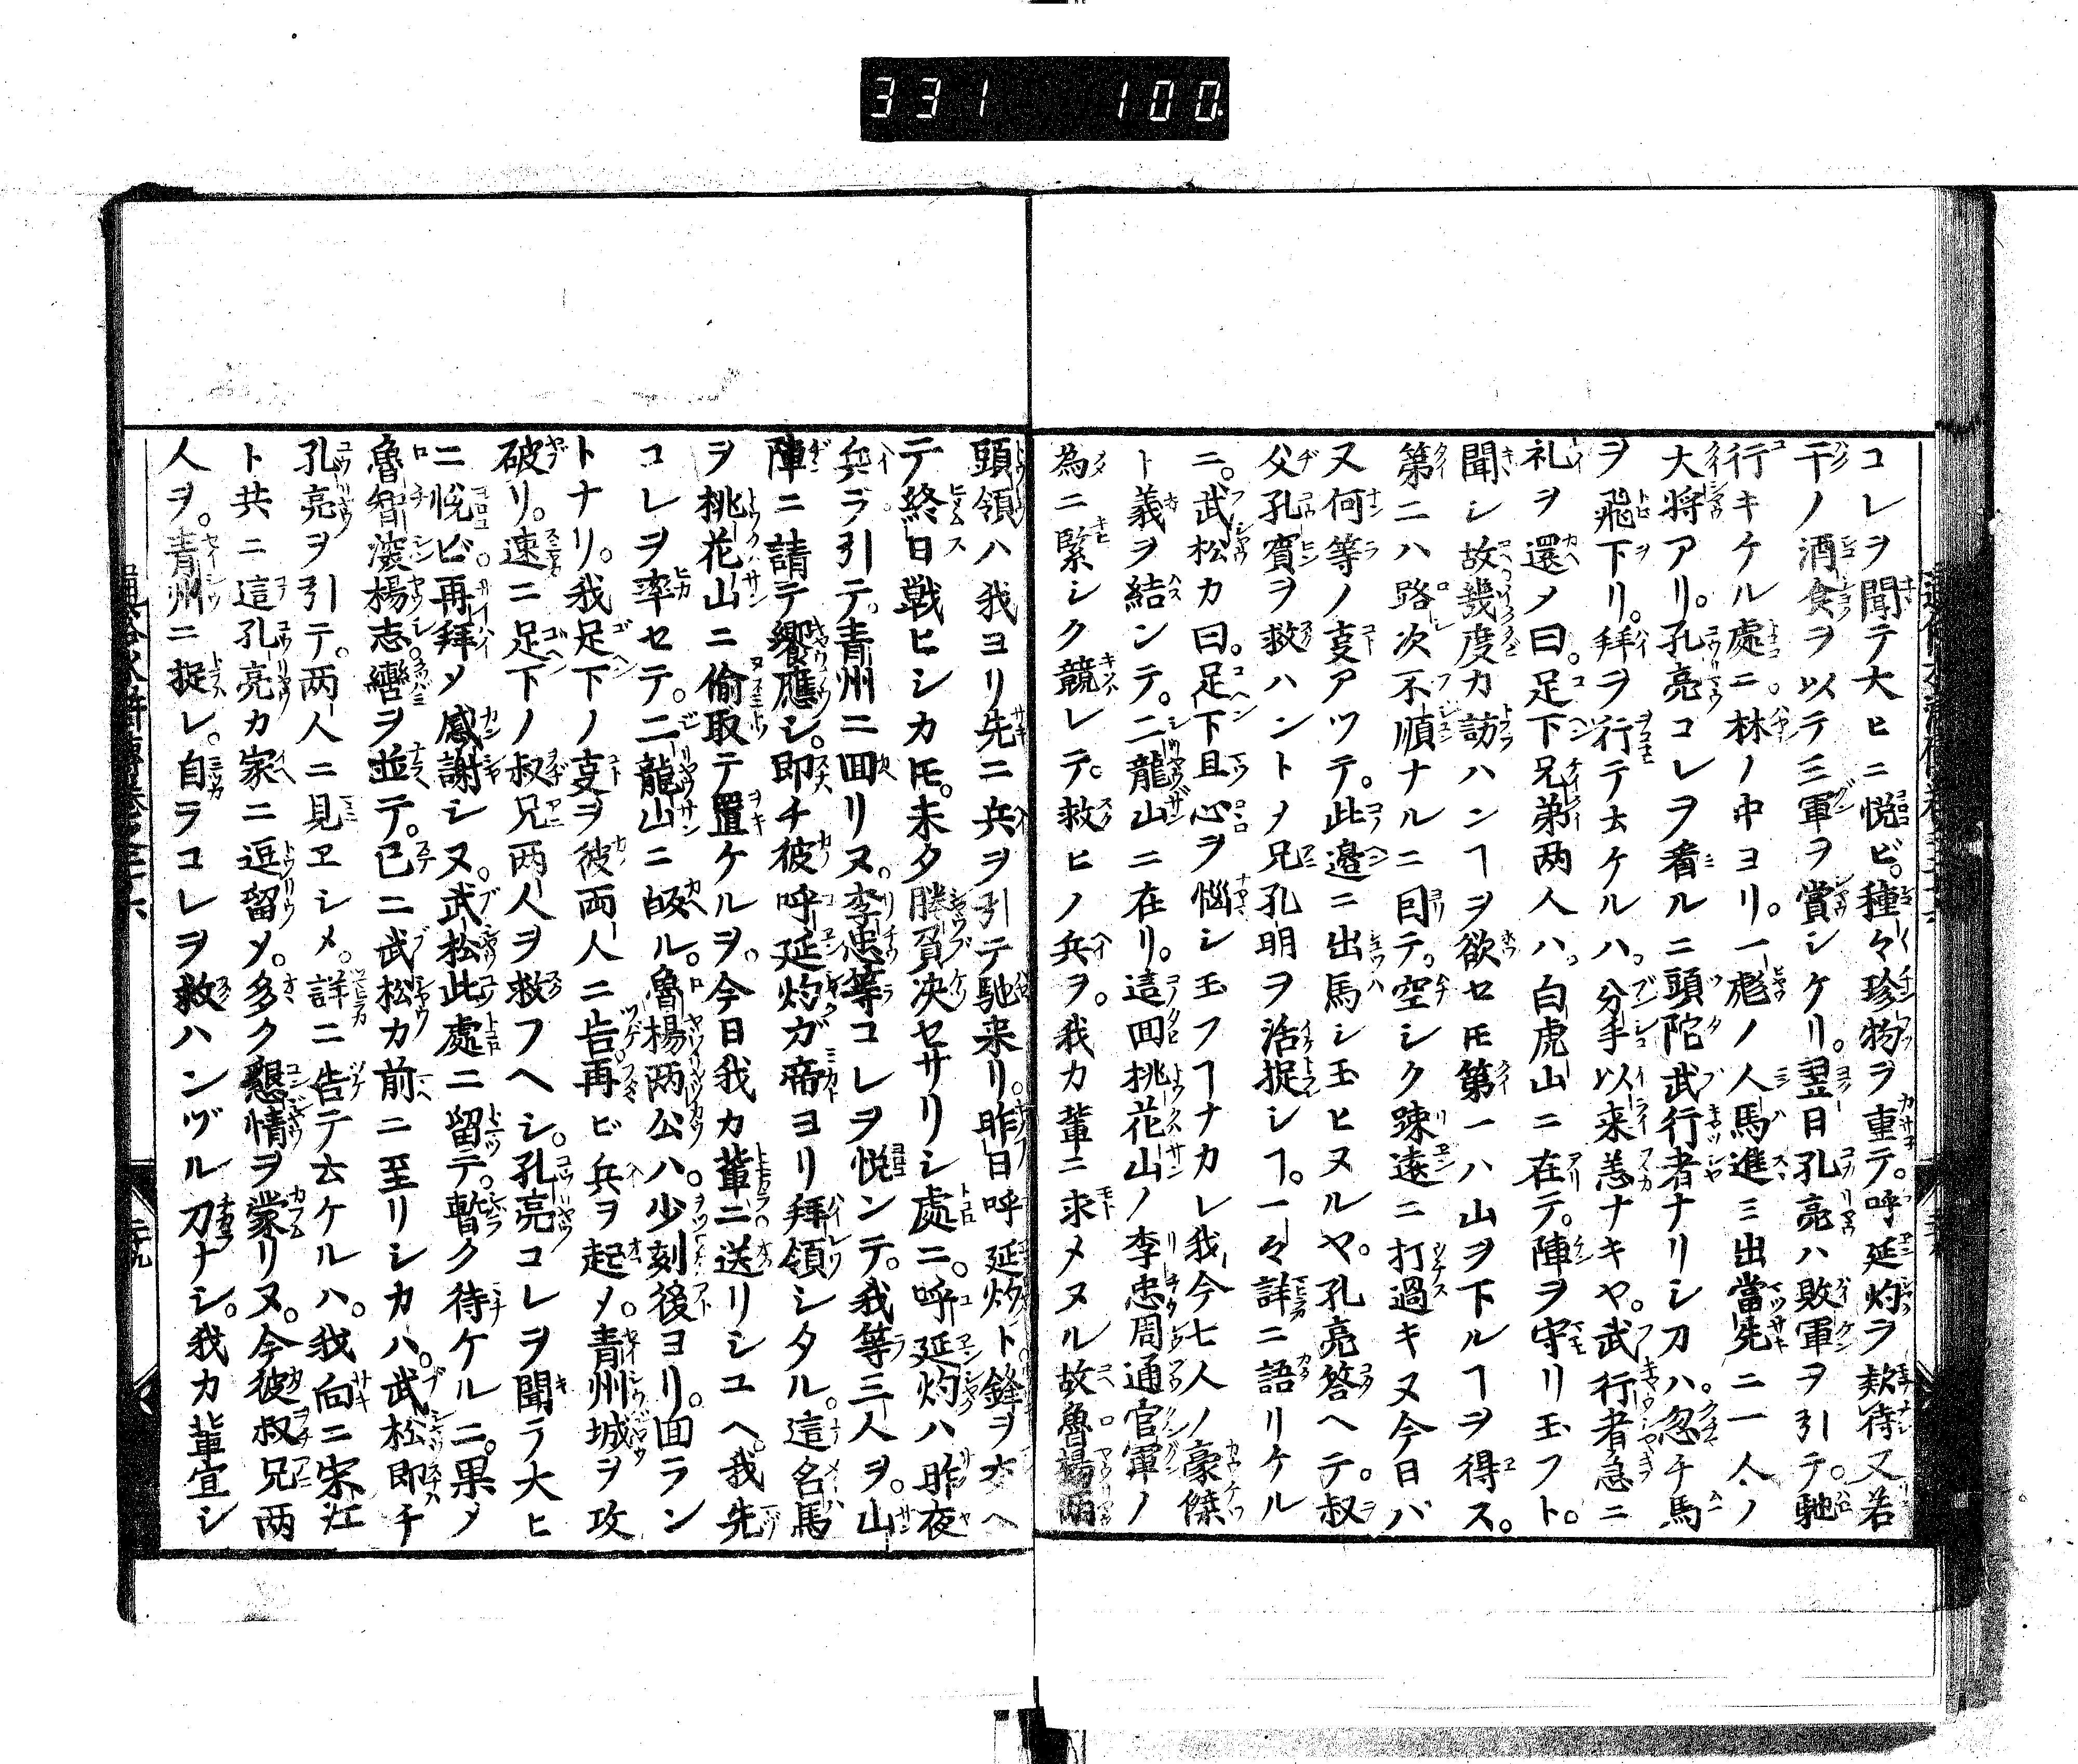 331 100
コレヲ聞テ大ヒニ悦ビ。種々珍物ヲ重テ。呼延灼ヲ款待又若
干ノ酒食ヲ以テ三軍ヲ賞シケリ。翌日孔亮ハ敗軍ヲ引テ。馳
行キケル處ニ。林ノ中ヨリ。一彪ノ人馬進ミ出當先ニ一人ノ
大将アリ。孔亮コレヲ看ルニ頭陀武行者ナリシカハ。忽チ馬
ヲ飛下リ。拜ヲ行テ云ケルハ。分手以来恙ナキヤ。武行者急ニ
礼ヲ還メ曰。足下兄弟両人ハ。白虎山ニ在テ。陣ヲ守リ玉フト。
聞シ故幾度カ訪ハンヿヲ欲セモ第一ハ山ヲ下ルヿヲ得ス。
第二ハ路次不順ナルニ因テ。空シク疎遠ニ打過キヌ今日バ
又何等ノ叓アツテ。此邉ニ出馬シ玉ヒヌルヤ。孔亮答ヘテ。叔
父孔賓ヲ救ハントメ兄孔明ヲ活捉シヿ。一々詳ニ語リケル
ニ。武松カ曰。足下且心ヲ惱シ玉フヿナカレ我今七人ノ豪傑
ト義ヲ結ンテ。二龍山ニ在リ。這回桃花山ノ李忠周通官軍ノ
為ニ緊シク競レテ。救ヒノ兵ヲ。我カ輩ニ求メヌル故魯楊両
頭領ハ我ヨリ先ニ兵ヲ引テ馳来リ。昨日呼延灼ト。鋒ヲ交ヘ
テ終日戦ヒシカ𪜈。未タ勝負决セサリシ處ニ。呼延灼ハ昨夜
兵ヲ引テ。青州ニ回リヌ。李忠等コレヲ悦ンテ。我等三人ヲ。山
陣ニ請テ饗應シ。即チ彼呼延灼ガ帝ヨリ拜領シタル。這名馬
ヲ桃花山ニ偷取テ置ケルヲ。今日我カ輩ニ送リシユヘ。我先
コレヲ牽セテ。二龍山ニ皈ル。魯楊両公ハ。少刻後ヨリ。回ラン
トナリ。我足下ノ叓ヲ彼両人ニ告再ビ兵ヲ起メ。青州城ヲ攻
破リ。速ニ足下ノ叔兄両人ヲ救フヘシ。孔亮コレヲ聞テ大ヒ
ニ悦ビ。再拜メ感謝シヌ。武松此處ニ留テ。暫ク待ケルニ。果メ
魯智深楊志。轡ヲ並テ。已ニ武松カ前ニ至リシカハ。武松即チ
孔亮ヲ引テ。両人ニ見ヱシメ。詳ニ告テ云ケルハ。我向ニ宋江
ト共ニ這孔亮カ家ニ逗留メ。多ク懇情ヲ蒙リヌ。今彼叔兄両
人ヲ。青州ニ捉レ。自ラコレヲ救ハンヅル刀ナシ。我カ輩宜シ